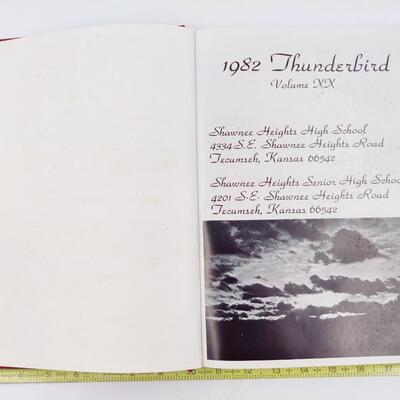 1982 Thunderbird
Volume XX
Shawnee Heights High School
4334 S.E. Shawnee Heights Road
Tecumseh, Kansas 66542
Shawnee Heights Senior High School
4201 S.E. Shawnee Heights Road
Tecumseh, Kansas 66542
4 5 6 7 8 9 10 11 12 13 14 15 16 17